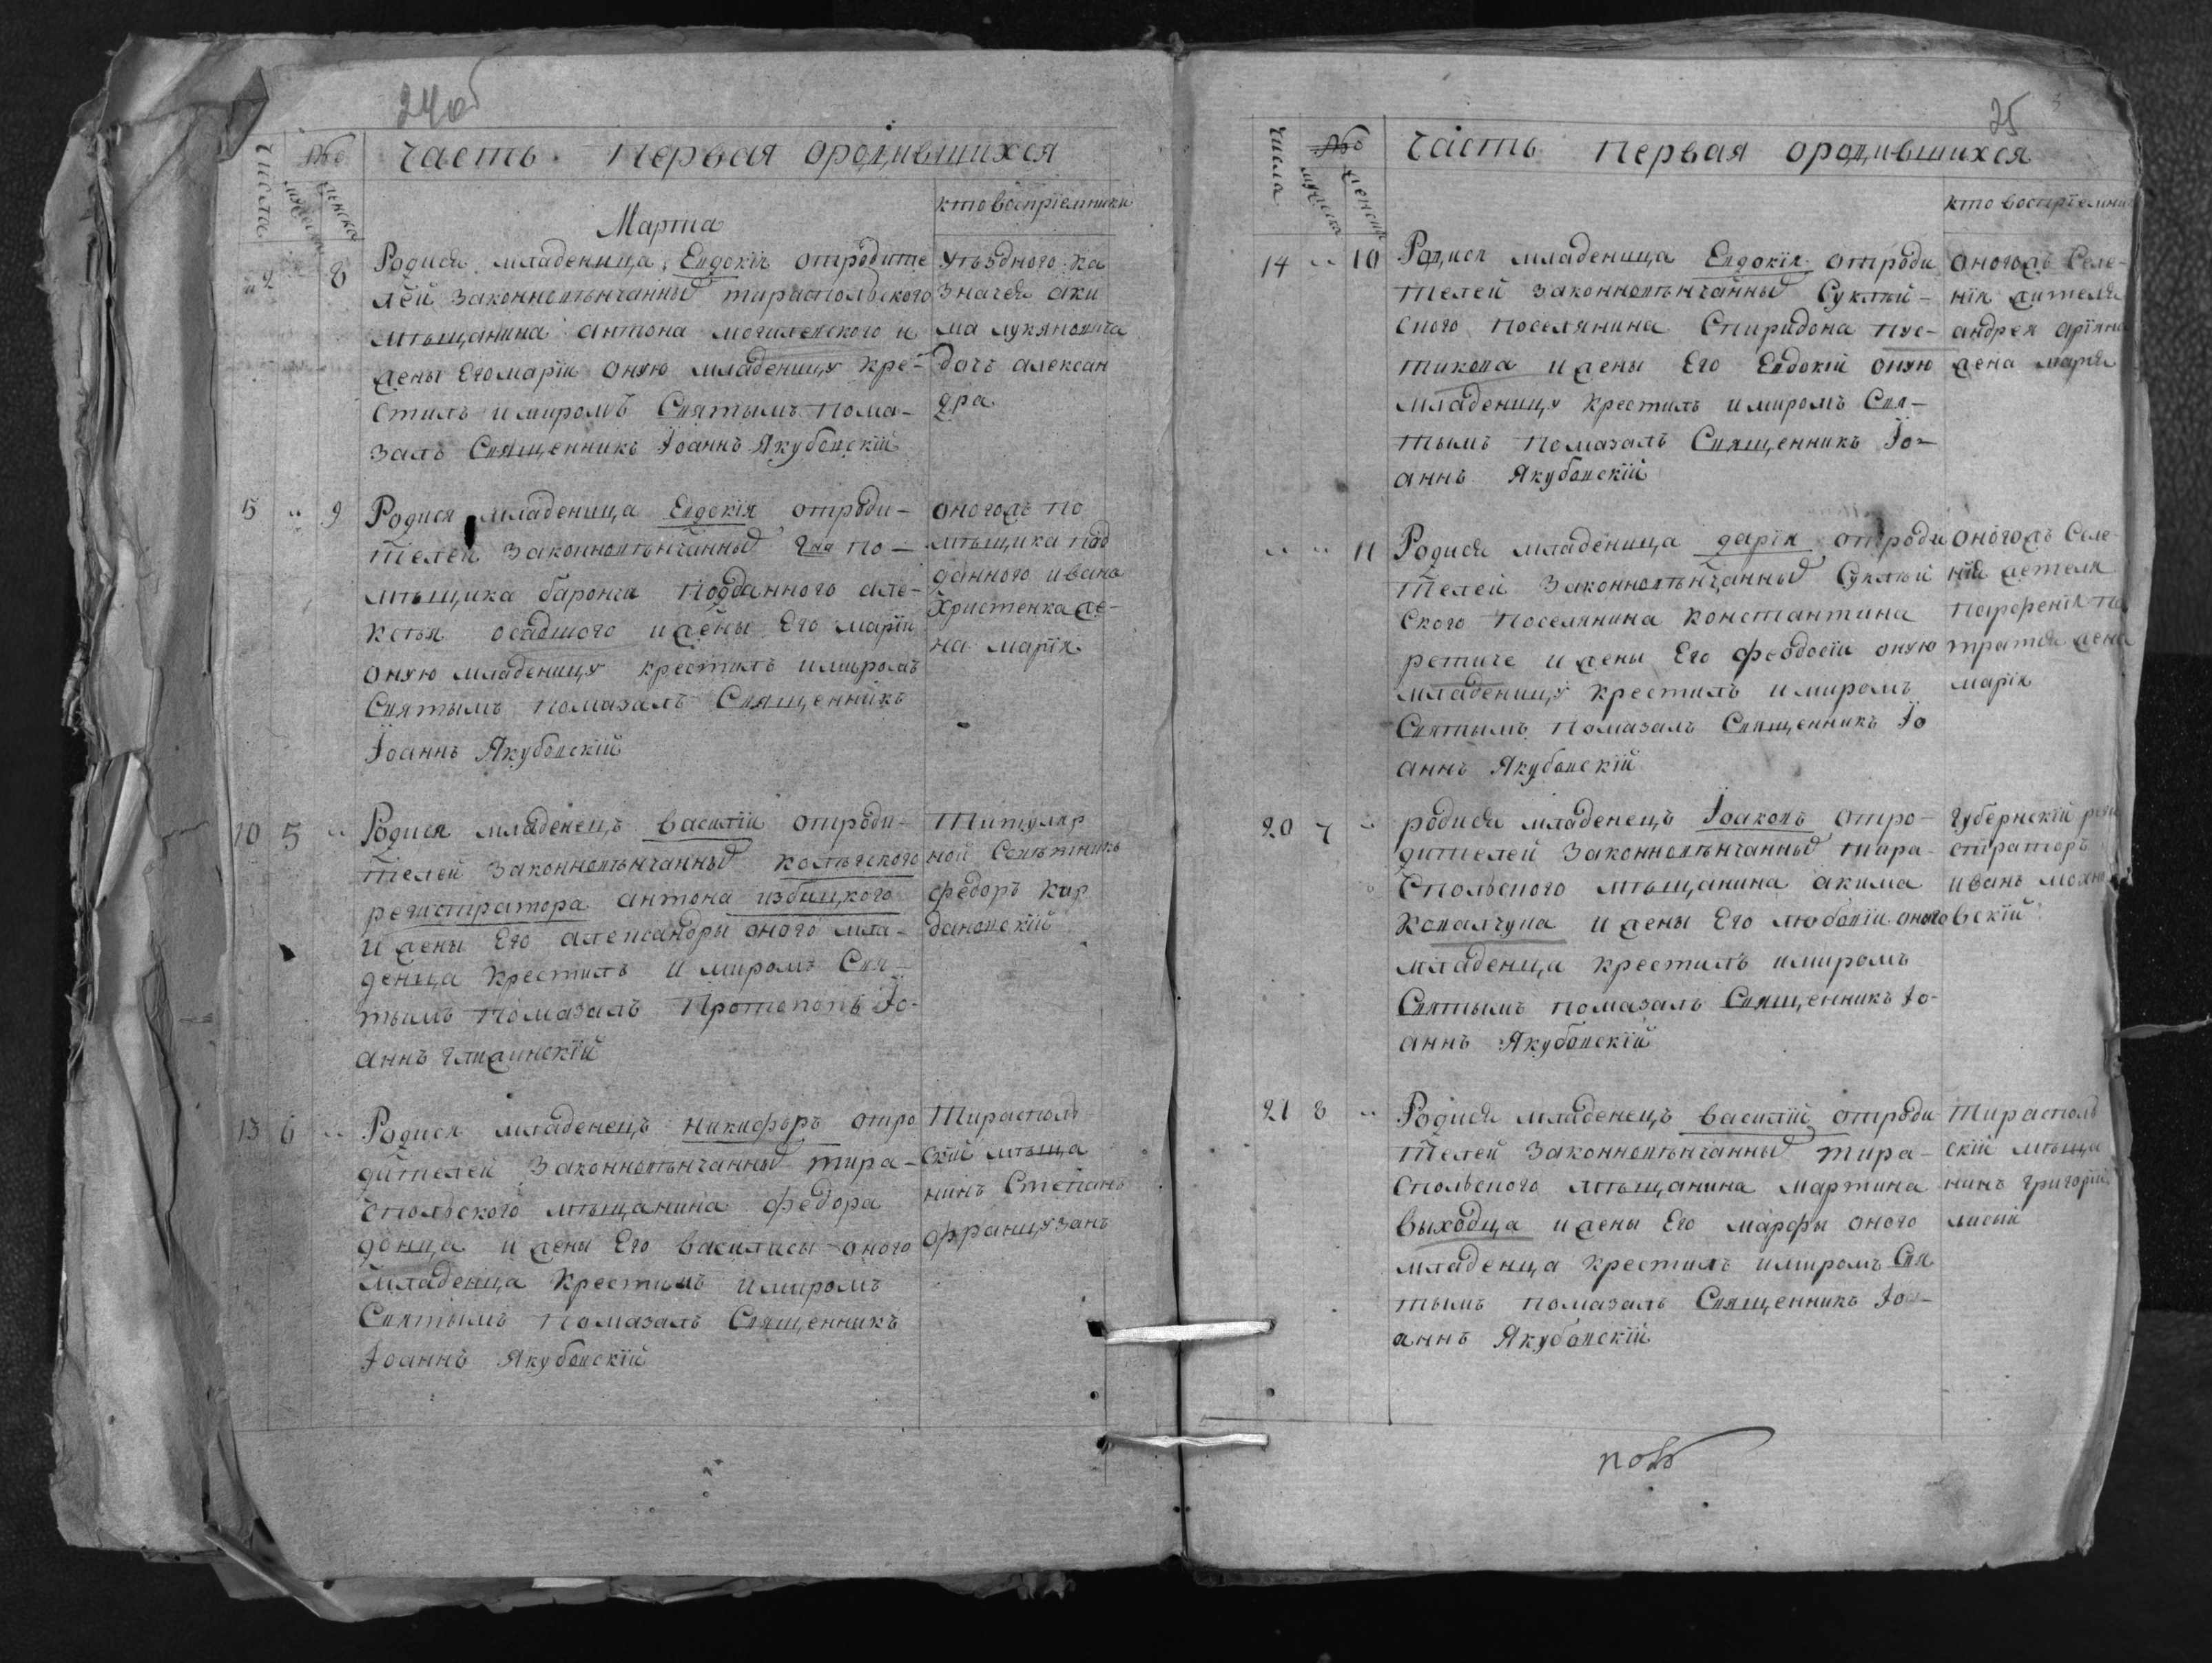 24об
числа
№
мужеска
женска
Часть первая ородившихся
Марта
кто воспріемники
2 „ 8
Родися младеница Евдокіѣ отродите
лей законновѣнчанных тираспольского
мѣщанина антона могилевского и
жены Его маріи оную младеницу Кре-
стилъ имиромъ Святымъ пома-
залъ Священникъ Іоаннъ Якубовскій
Уѣздного ка
значея аки
ма лукяновича
дочъ алексан
дра
5 „ 9
Родися младеница Евдокія отроди-
телей законновѣнчанных Гна по-
мѣщика баронча подданного але-
ксѣя осадшого и жены Его маріи
оную младеницу крестилъ имиромъ
Святымъ помазалъ Священникъ
Іоаннъ Якубовскій
оногожъ по
мѣщика под
данного ивана
Христенка же-
на марія
10 5 „
Родися младенецъ василій отроди-
телей законновѣнчанных
регистратора антона избицкого
и жены Его александры оного мла-
денца крестилъ и миромъ Свя-
тымъ помазалъ Протопопъ Іо-
аннъ глижинскій
Титуляр
ной Совѣтникъ
федоръ кар
дановскій
13 6 „
Родися младенецъ никифоръ отро
дителей законновѣнчанных тира-
спольского мѣщанина федора
донца и жены Его василисы оного
младенца крестилъ имиромъ
Святымъ помазалъ Священникъ
Іоаннъ Якубовскій
Тирасполь
скій мѣща
нинъ Степанъ
французанъ
25
числа
№
мужеска
женска
Часть первая ородившихся
кто воспріемни
14 „ 10
Родися младеница Евдокія отроди
телей законновѣнчанных Суклей-
ского поселянина Спиридона пус-
тикова и жены Его Евдокіи оную
младеницу крестилъ имиромъ Свя-
тымъ помазалъ Священникъ Іо-
аннъ Якубовскій
оногожъ Селе-
нія жителя
андрея
жена марія
„ „ 11
Родися младеница дарія отроди
телей законновѣнчанных Суклей
ского поселянина константина
ретиче и жены Его феодосіи оную
младеницу крестилъ имиромъ
Святымъ помазалъ Священникъ Іо
аннъ Якубовскій
оногожъ Селе-
нія жителя
парфенія
жена
марія
20 7 „
родися младенецъ Іаковъ отро-
дителей законновѣнчанных тира-
спольского мѣщанина акима
ковалчука и жены Его любовіи оного
младенца крестилъ имиромъ
Святымъ помазалъ Священникъ Іо-
аннъ Якубовскій
Губернскій реги
страторъ
иванъ
вскій
21 8 „
Родися младенецъ василій отроди
телей законновѣнчанных тира-
спольского мѣщанина мартина
выходца и жены Его марфы оного
младенца крестилъ имиромъ Свя
тымъ помазалъ Священникъ Іо-
аннъ Якубовскій
тирасполь
скій мѣща
нинъ григорій
лисый